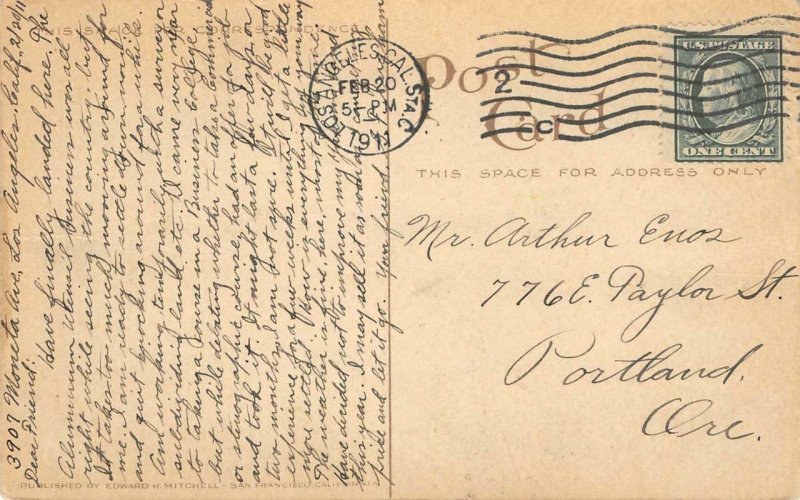 THIS SPACE FOR CORRESPONDENCE
3907 Moneta Ave., Los Angeles Calif. 2/20/11
Dear Friend:
Have finally landed here. The
Aluminum Utensil business was all
right while seeing the country, but
It takes too much moving around for
me. I am ready to settle down now
and quit knocking around for a while.
Am working temporarily with a surveyor
subdividing land etc. I came very near
to taking a course in a Business College
but while debating whether to take a commercial
or stenographic course, had an offer of a job
and took it. It might last a few days or
two months, I am not sure. It will be good
experience for a few weeks until I get a little
more settled. How is everything with you?
The weather is fine here, most
have decided not to improve my
this year. I may sell it as
pride and let it go. Your friend
PUBLISHED BY EDWARD H. MITCHELL - SAN FRANCISCO, CALIFORNIA
Post
Card
LOS ANGELES, CAL. STA. C
FEB 20
5 PM
1911
2
U.S. POSTAGE
ONE CENT
THIS SPACE FOR ADDRESS ONLY
Mr. Arthur Enos
776 E. Taylor St.
Portland.
Ore.